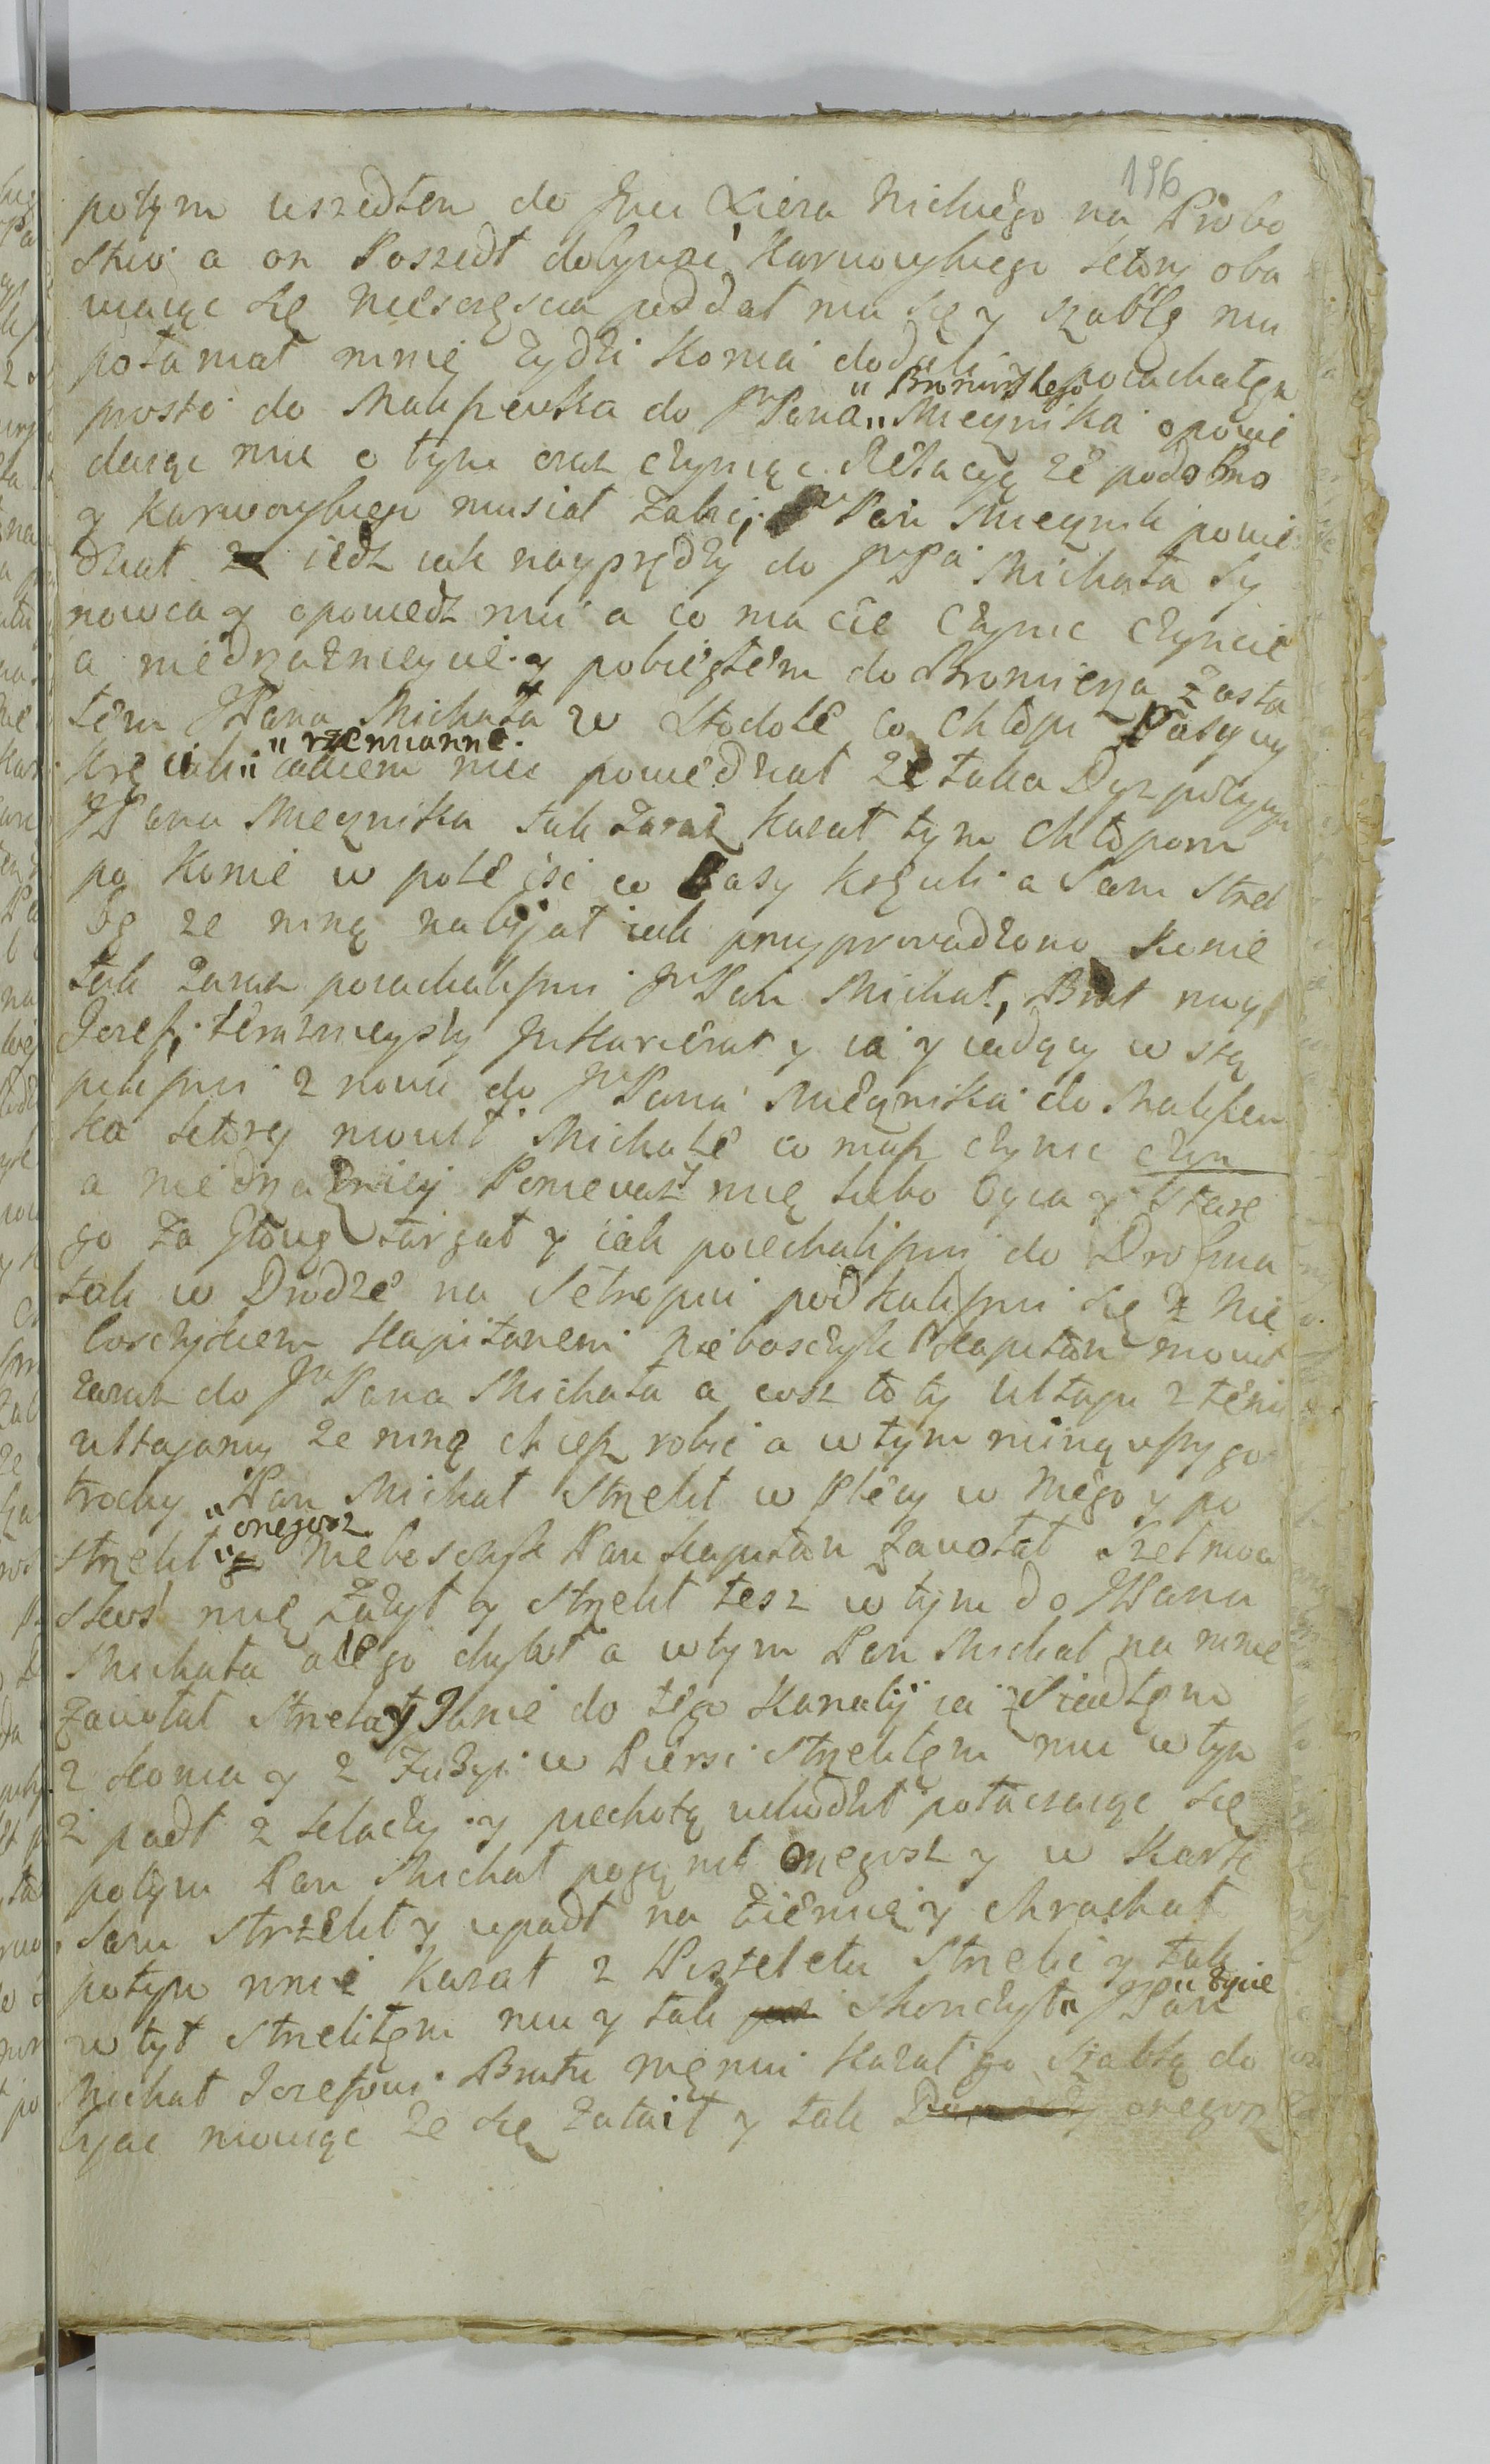 196
potym uszedłem do Jmci Xiera Nickiego na Probo
stwo a on Poszedł dobywać Karwowskiego ktory oba
wiaiąc się niesczęscia poddał mu się y szablę mu
połamał mnię żydzi konia dodali poiachałem
prosto do Małszewka do Jm Pana "Bronirskiego" Miecznika opowie
daiąc mu o tym oraz czyniąc Relacyą ze podobno
y Karwowskiego musiał zabić, Jm Pan Miecznik powie
dział iedz iak nayprędzy do Jm Pa Michała Sy
nowca y opowiedz mu a co macie czynic czyncie
a niedrazniycie y pobiegłem do Bromierza zasta
łem JPana Michała w Stodole co chłopi Pasy uy
kręcali "rzemianne" iakiem mu powiedział ze taka Dyzpozycya
JPana Miecznika tak zaraz kazał tym chłopom
po konie w pole isc co Pasy kręcili a sam strzel
bę ze mną nabijał iak przyprowadzono konie
tak zaraz poiachalismy Jm Pan Michał, Brat moy
Jozef, teraznieyszy Jm Kamerat y ia y iadący wstą
pilismy znowu do Jm Pana Miecznika do Małszew
ka ktory mowił Michale co masz czynic czyn
a niedraznicy Poniewasz mię lubo Oyca y Stare
go za głowę targał y iak poiechalismy do Drobina
tak w Drodze na Setropiu podkalismy się z Nie
boszczykiem Kapitanem Nieboszczyk Kapitan mowił
zaraz do Jm Pana Michała a cosz to ty Ułtayu z temi
ułtajamy ze mną chcesz robic a wtym minąwszy go
trochy "Pan Michał strzelił w Plecy w Niego y po
strzelił "onegosz" Nieboszczyk Pan Kapitan zawołał Szelmo
stwoś mię zażył y strzelił tesz wtym do JPana
Michała ale go chybił a wtym Pan Michał na mnie
zawołał Strzelay Janie do tego Kanalij ia zsiadłem
z konia y z Fuzyi w Piersi strzeliłem mu w tym
z padł z klaczy y piechotą uchodził potaczaiąc się
potym Pan Michał pogonił onegosz y w Karze
sam strzelił y upadł na ziemię y chrachał
potym mnie kazał z Pisteletu strzelic y tak
w tył strzeliłem mu y tak skonczył "życie" JPan
Michał Jozefowi Bratu memu kazał go szablą do
bijac mowiąc ze się zataił y tak onegosz